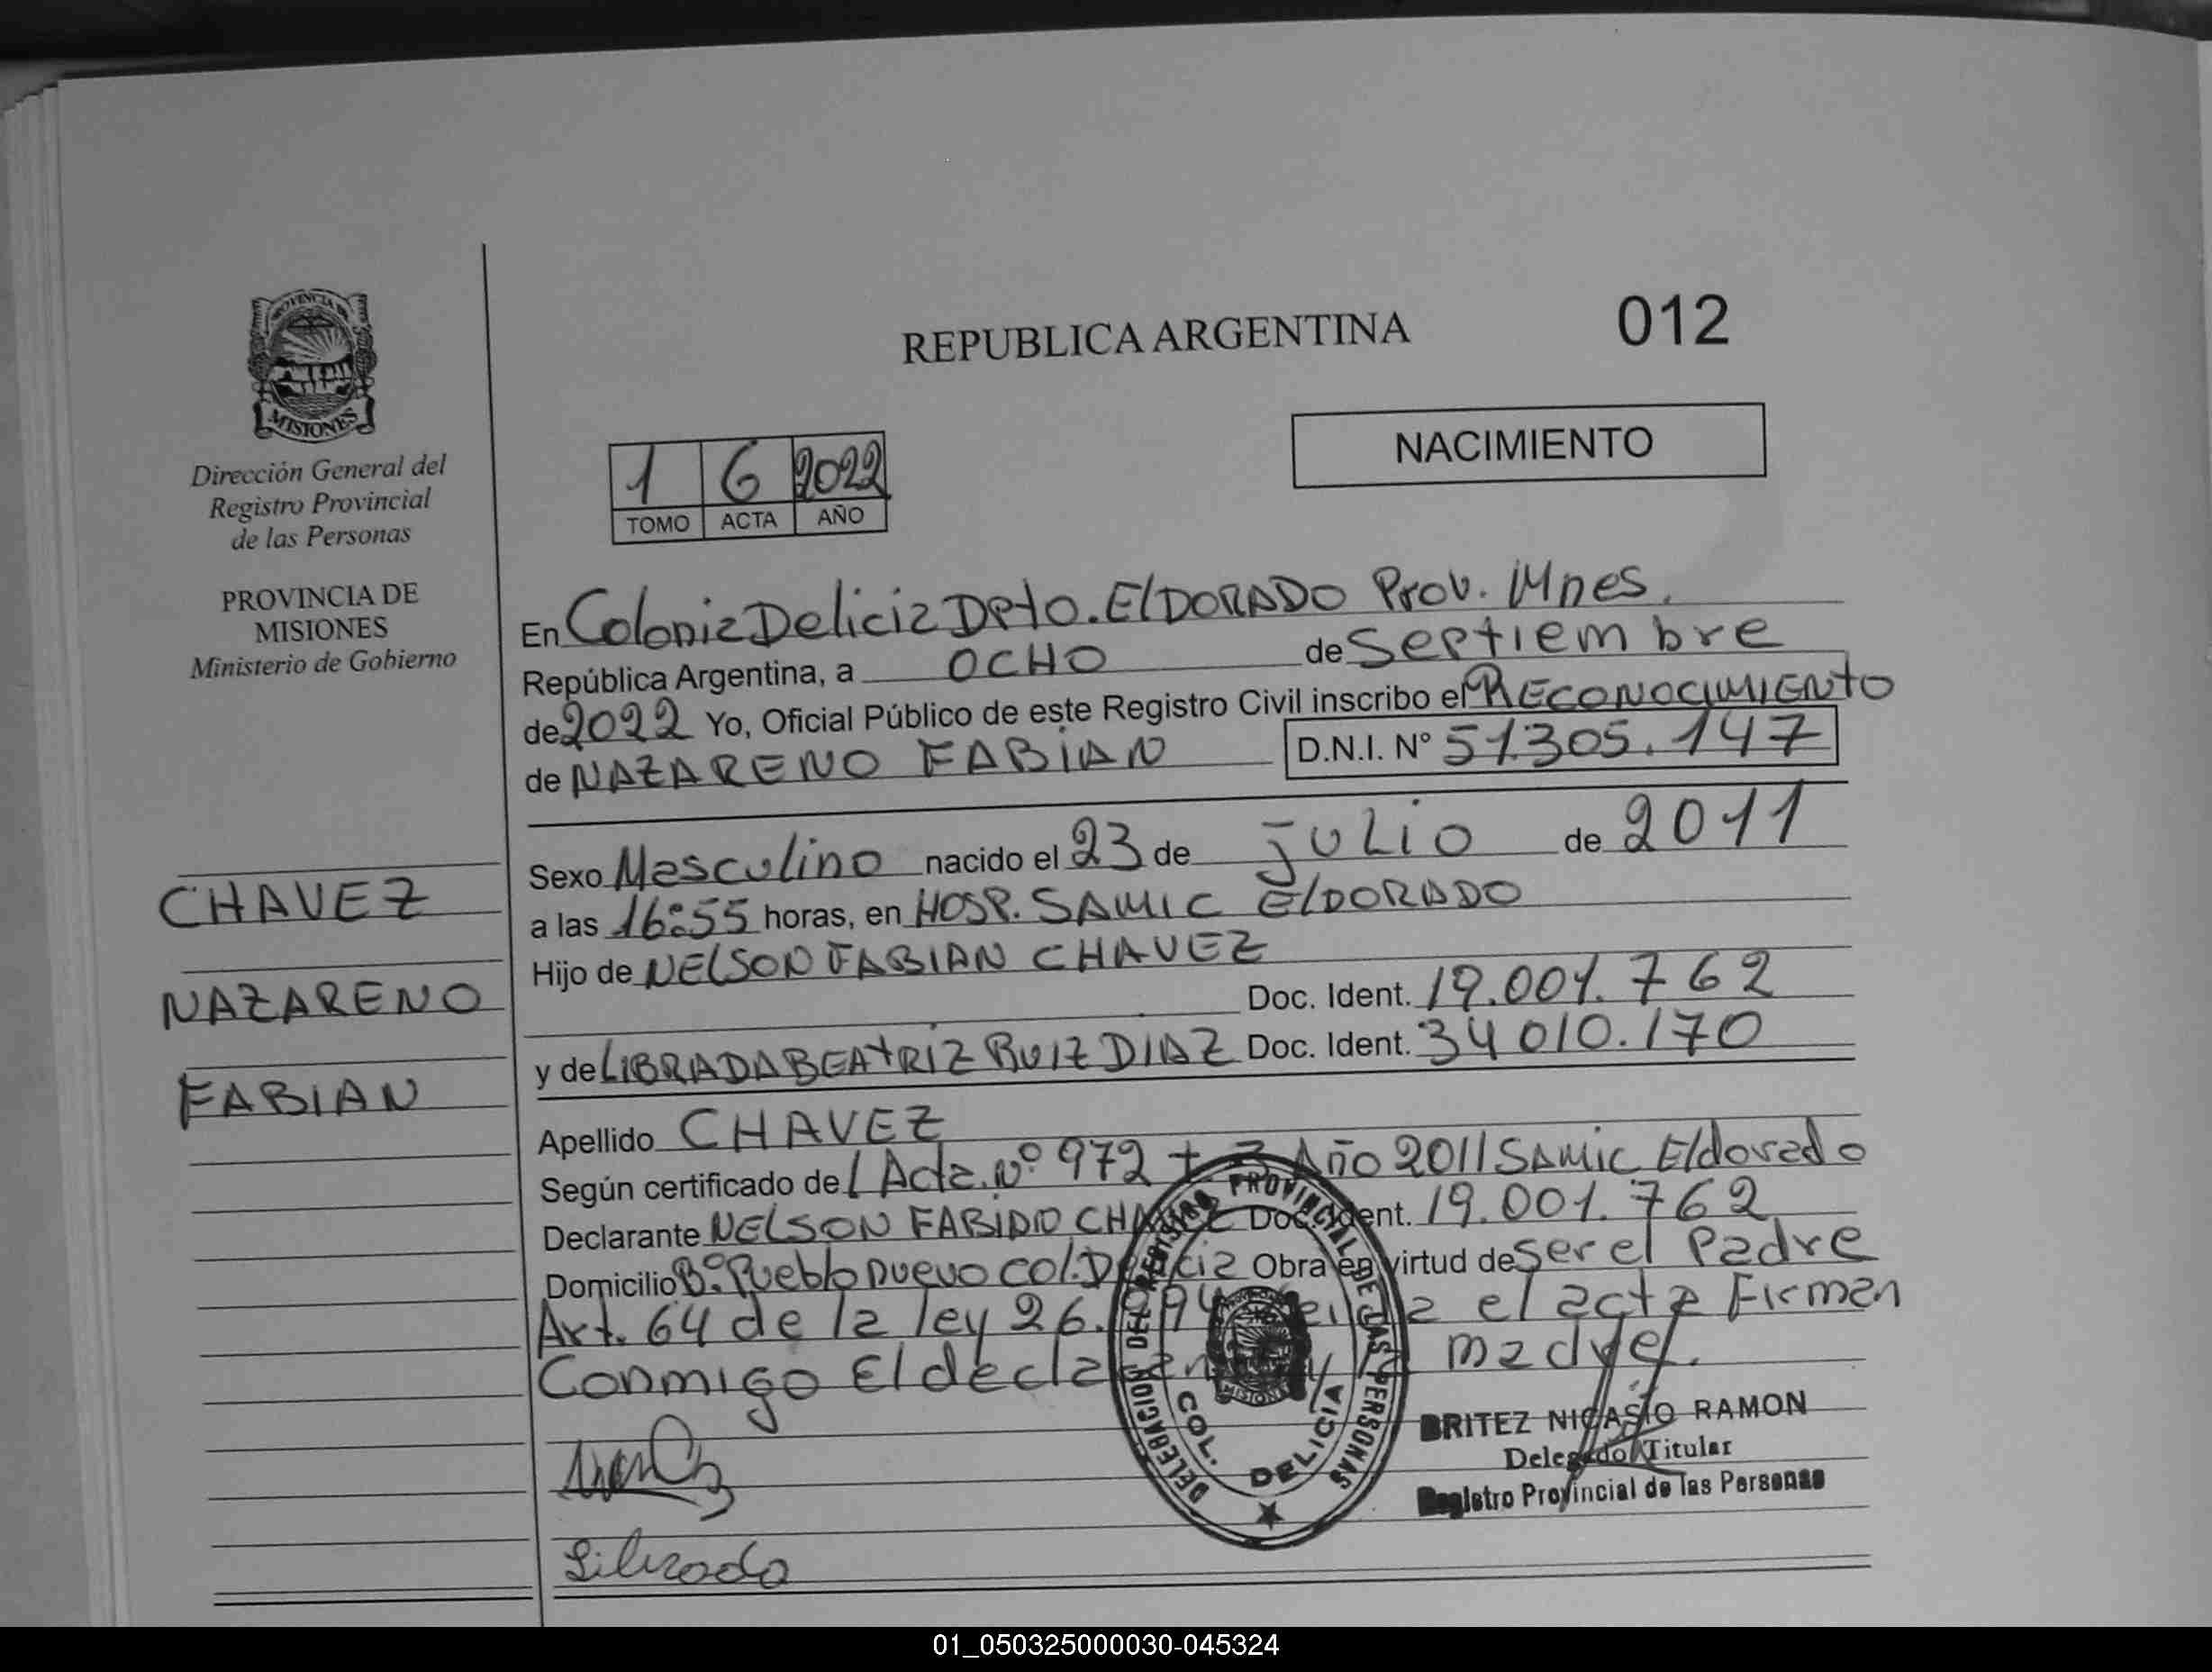 REPUBLICA ARGENTINA
012
PROVINCIA DE
MISIONES
Dirección General del
Registro Provincial
de las Personas
PROVINCIA DE
MISIONES
Ministerio de Gobierno
NACIMIENTO
1 6 2022
TOMO ACTA AÑO
En Colonia Delicia Dpto. ElDORADO Prov. Mnes.
República Argentina, a OCHO de Septiembre
de 2022 Yo, Oficial Público de este Registro Civil inscribo el RECONOCIMIENtO
de NAZARENO FABiAN D.N.I. N° 51.305.147
Sexo Masculino nacido el 23 de juLio de 2011
a las 16:55 horas, en HOSP. SAMIC ElDORADO
Hijo de NELSON FABIAN CHAVEZ
Doc. Ident. 19.001.762
y de LIBRADA BEAtRiZ RUIZ DIAZ Doc. Ident. 34010.170
CHAVEZ
NAZARENO
FABIAN
Apellido CHAVEZ
Según certificado de l Acta. Nº 972 Año 2011 SAMIC Eldorado
Declarante NELSON Doc. Ident. 19.001.762
Domicilio Bº. Pueblo nuevo Col. Delicia Obra en virtud de Ser el Padre
Art. 64 de la ley 26. el acta Firman
Conmigo El madre.
BRITEZ NICASIO RAMON
Delegado Titular
Registro Provincial de las Personas
DELEGACION DEL REGISTRO PROVINCIAL DE LAS PERSONAS
COL. DELICIA
MISIONES
Librada
01_050325000030-045324